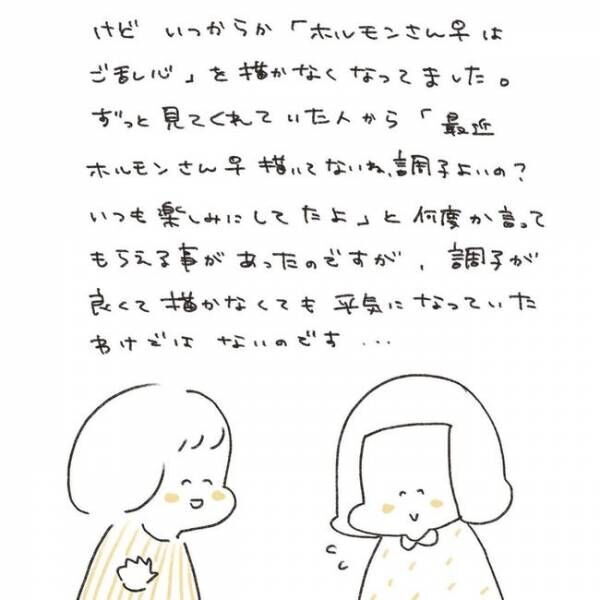 けど いつからか「ホルモンさん早は
ご乱心」を描かなくなってました。
ずっと見てくれていた人から「最近
ホルモンさん早描いてないね、調子よいの？
いつも楽しみにしてたよ」と何度か言って
もらえる事があったのですが、調子が
良くて描かなくても平気になっていた
わけではないのです...